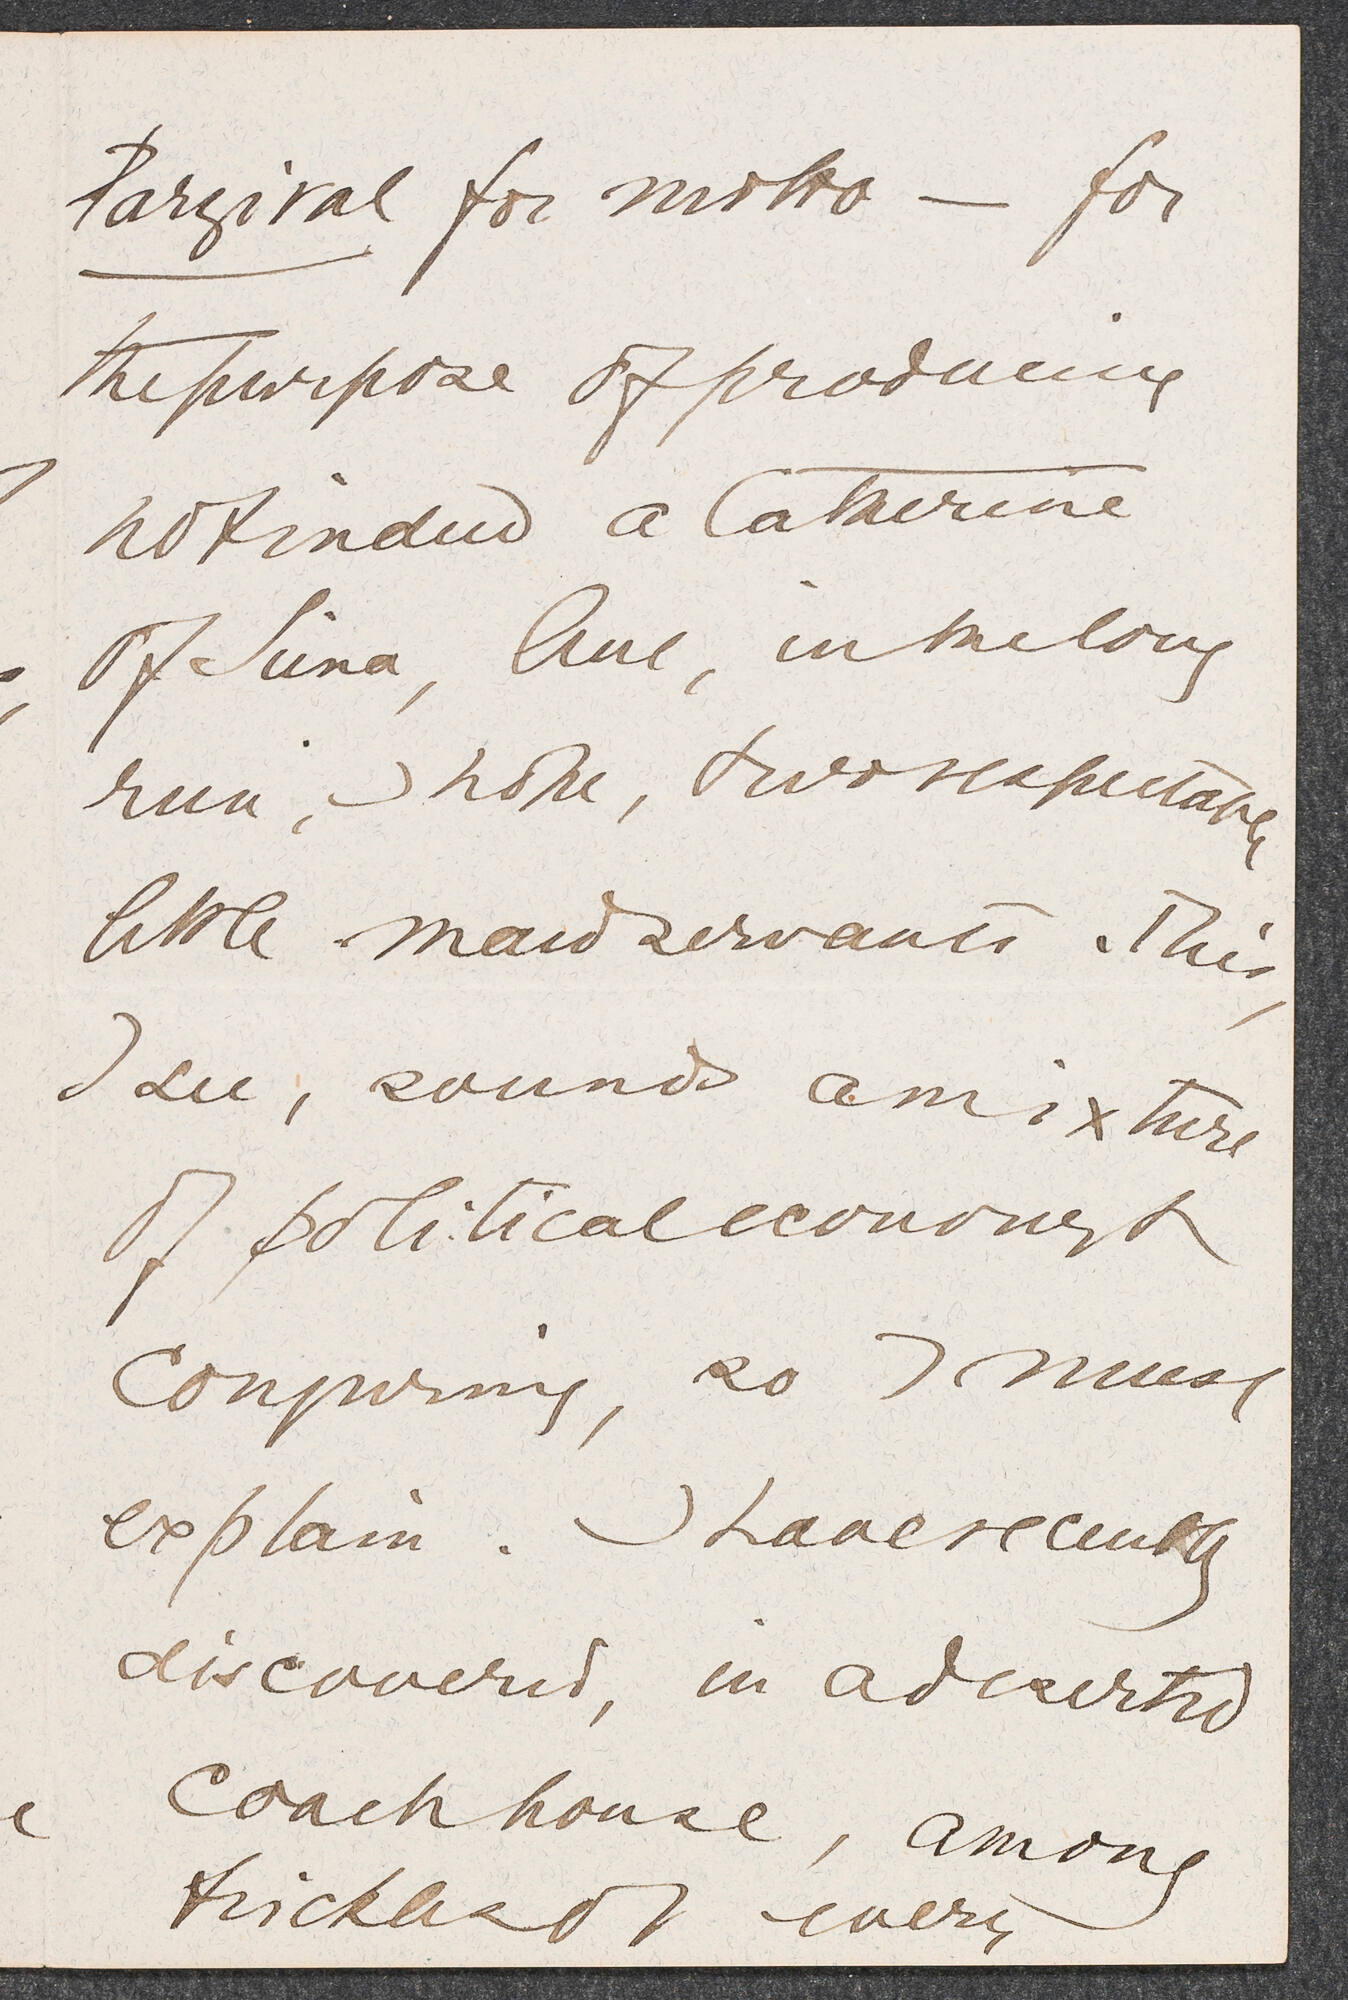 Parzival for motto — for
the purpose of producing
not indeed a Catherine
of Siena, but, in the long
run, I hope, two respectable
little maidservants. This,
I see, sounds a mixture
of political economy &
conjuring, so I must
explain. I have recently
discovered, in a deserted
coach house, among
trickles of every